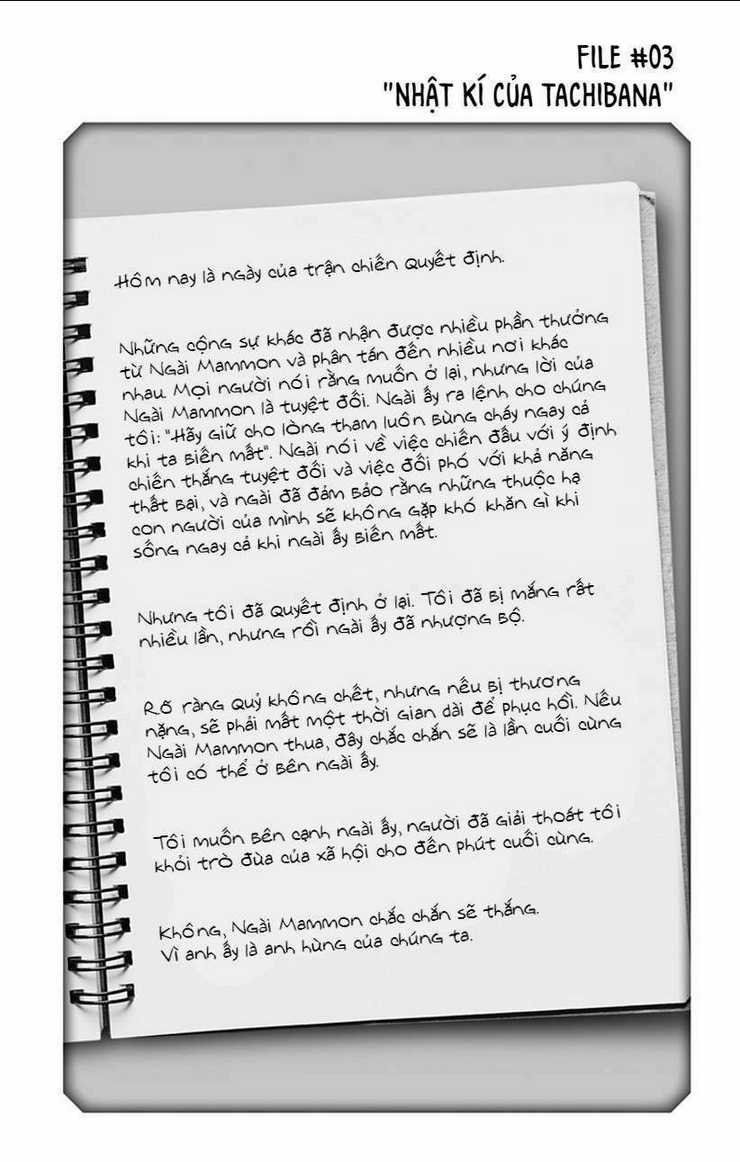 FILE #03
"NHẬT KÍ CỦA TACHIBANA"
Hôm nay là ngày của trận chiến quyết định.
Những cộng sự khác đã nhận được nhiều phần thưởng
từ Ngài Mammon và phân tán đến nhiều nơi khác
nhau. Mọi người nói rằng muốn ở lại, nhưng lời của
Ngài Mammon là tuyệt đối. Ngài ấy ra lệnh cho chúng
tôi: "Hãy giữ cho lòng tham luôn bùng cháy ngay cả
khi ta biến mất". Ngài nói về việc chiến đấu với ý định
chiến thắng tuyệt đối và việc đối phó với khả năng
thất bại, và ngài đã đảm bảo rằng những thuộc hạ
con người của mình sẽ không gặp khó khăn gì khi
sống ngay cả khi ngài ấy biến mất.
Nhưng tôi đã quyết định ở lại. Tôi đã bị mắng rất
nhiều lần, nhưng rồi ngài ấy đã nhượng bộ.
Rõ ràng quỷ không chết, nhưng nếu bị thương
nặng, sẽ phải mất một thời gian dài để phục hồi. Nếu
Ngài Mammon thua, đây chắc chắn sẽ là lần cuối cùng
tôi có thể ở bên ngài ấy.
Tôi muốn bên cạnh ngài ấy, người đã giải thoát tôi
khỏi trò đùa của xã hội cho đến phút cuối cùng.
Không, Ngài Mammon chắc chắn sẽ thắng.
Vì anh ấy là anh hùng của chúng ta.